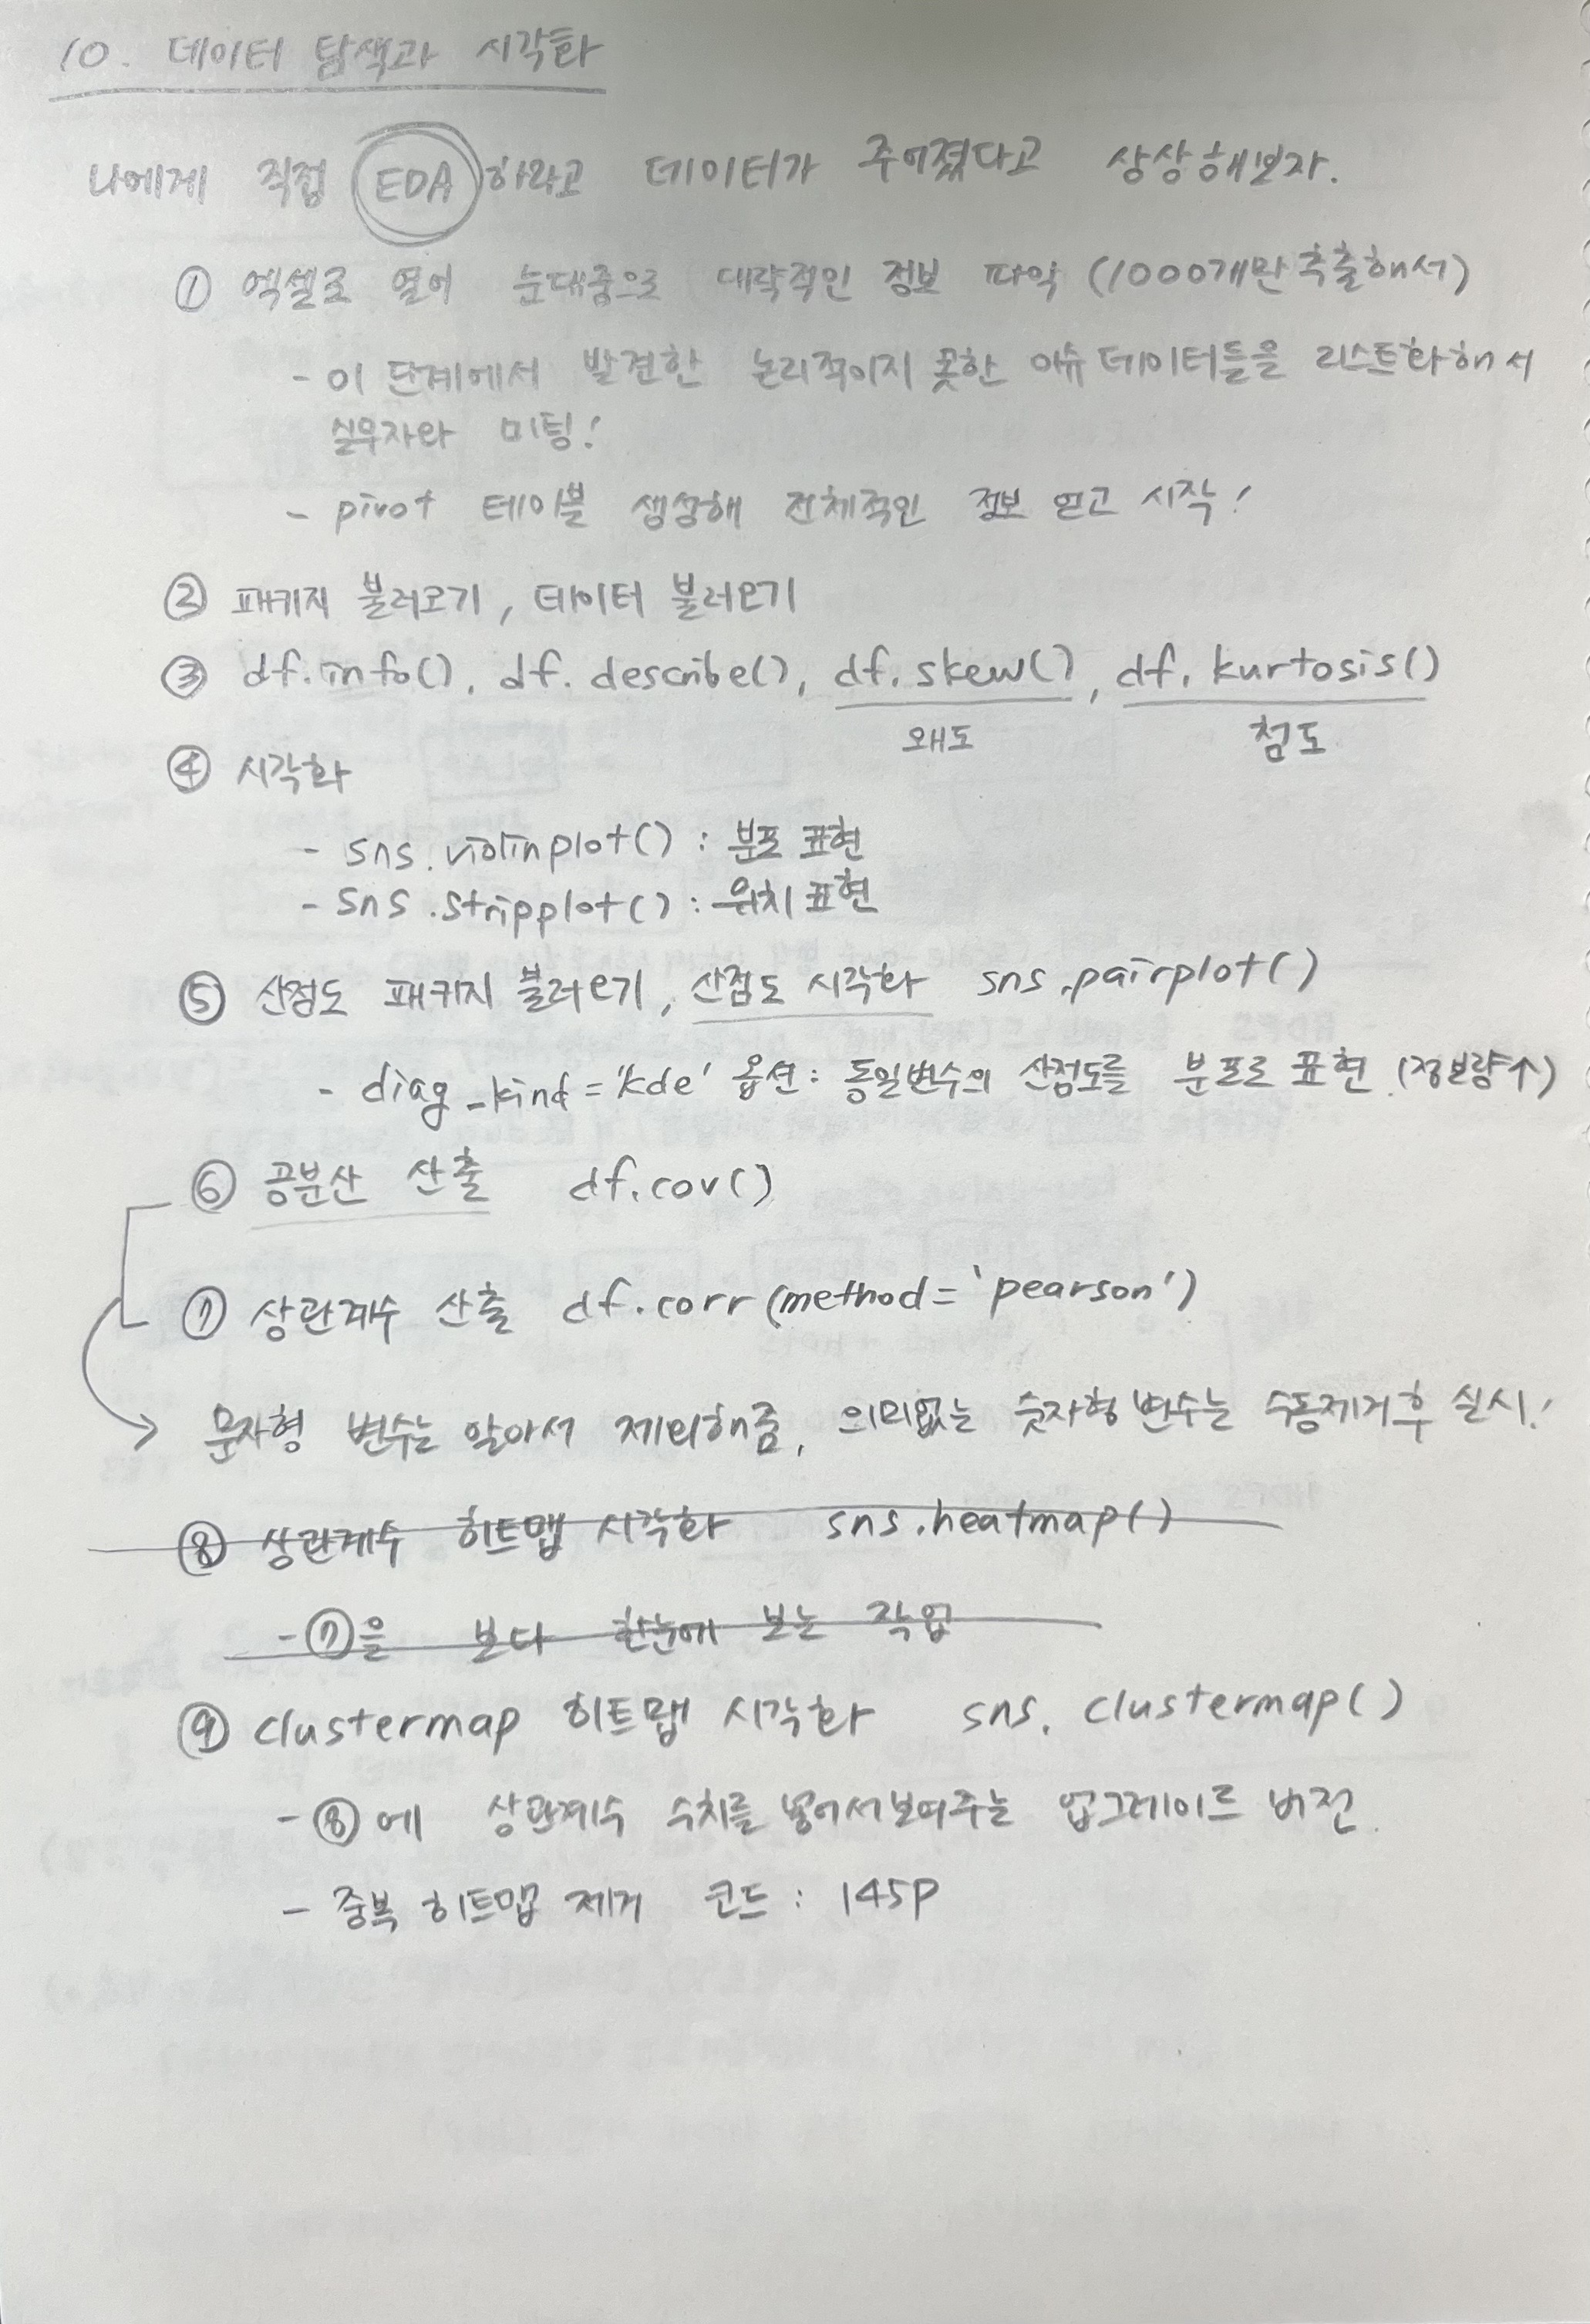 10. 데이터 탐색과 시각화
나에게 직접 EDA 하라고 데이터가 주어졌다고 상상해보자.
① 엑셀로 열어 눈대중으로 대략적인 정보 파악 (1000개만 추출해서)
- 이 단계에서 발견한 논리적이지 못한 이슈 데이터들을 리스트화해서
실무자와 미팅!
- pivot 테이블 생성해 전체적인 정보 얻고 시작!
② 패키지 불러오기, 데이터 불러오기
③ df.info(), df.describe(), df.skew(), df.kurtosis()
왜도 첨도
④ 시각화
- sns.violinplot() : 분포 표현
- sns.stripplot() : 위치 표현
⑤ 산점도 패키지 불러오기, 산점도 시각화 sns.pairplot()
- diag_kind='kde' 옵션: 동일변수의 산점도를 분포로 표현 (정보량↑)
⑥ 공분산 산출 df.cov()
⑦ 상관계수 산출 df.corr(method='pearson')
문자형 변수는 알아서 제외해줌, 의미없는 숫자형 변수는 수동제거 후 실시!
⑧ 상관계수 히트맵 시각화 sns.heatmap()
- ⑦을 보다 한눈에 보는 작업
⑨ clustermap 히트맵 시각화 sns.clustermap()
- ⑧에 상관계수 수치를 넣어서 보여주는 업그레이드 버전.
- 중복 히트맵 제거 코드 : 145P